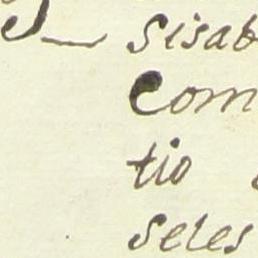 sisab
com
tio
seles